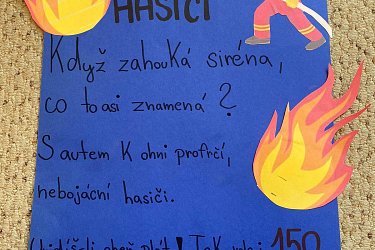 HASIČI
Když zahouká siréna,
co to asi znamená?
S autem k ohni profrčí,
nebojácní hasiči.
oheň ! Tak volej 150